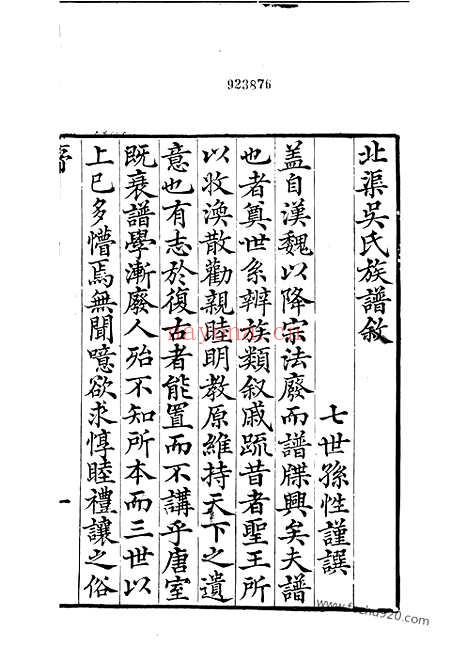 923876
北渠吳氏族譜敘
七世孫性謹譔
盖自漢魏以降宗法廢而譜牒興矣夫譜
也者奠世系辨族類叙戚疏昔者聖王所
以收渙散勸親睦明教原維持天下之遺
意也有志於復古者能置而不講乎唐室
既衰譜學漸廢人殆不知所本而三世以
上已多懵焉無聞噫欲求惇睦禮讓之俗
一